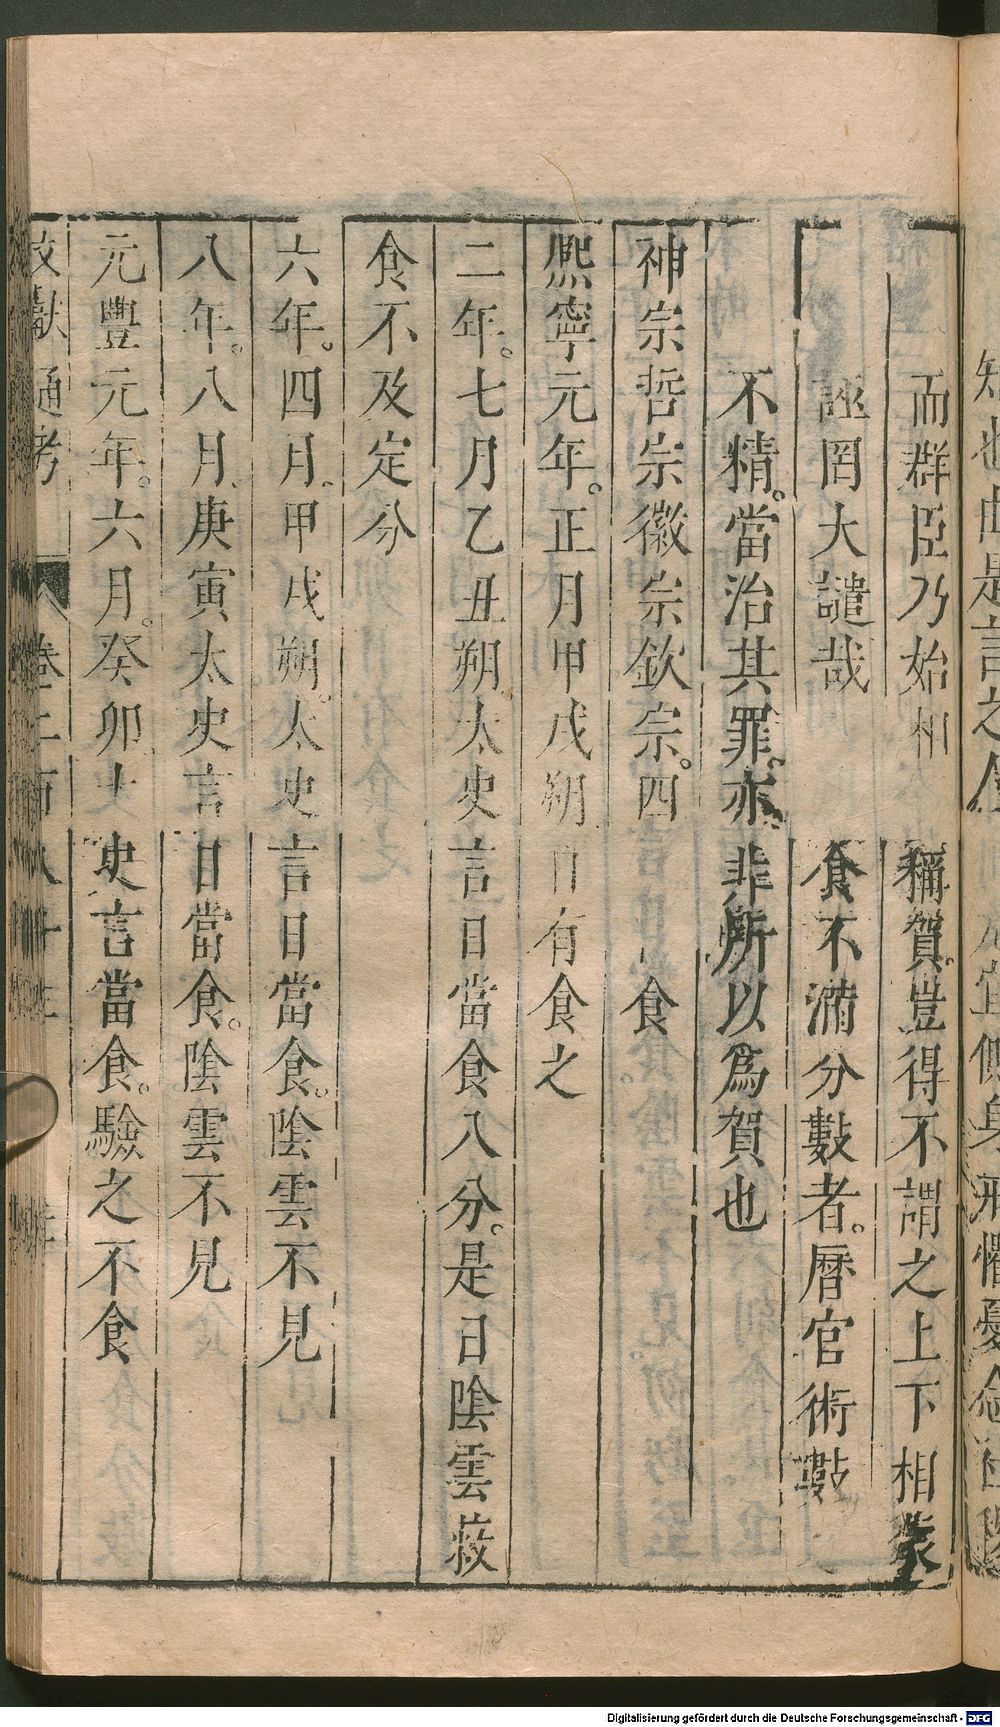 而群臣乃始相稱賀豈得不謂之上下相蒙
誣罔大譴哉食不滿分數者。曆官術數
不精。當治其罪。亦非所以為賀也
神宗哲宗徽宗欽宗。四食
熈寧元年。正月甲戌朔日有食之
二年。七月乙丑朔。太史言日當食八分。是日陰雲蔽
食不及定分
六年。四月。甲戌朔。太史言日當食。陰雲不見
八年。八月。庚寅太史言日當食。陰雲不見
元豐元年。六月。癸卯太史言當食。驗之不食
文獻通考 卷二百八十三
Digitalisierung gefördert durch die Deutsche Forschungsgemeinschaft - DFG